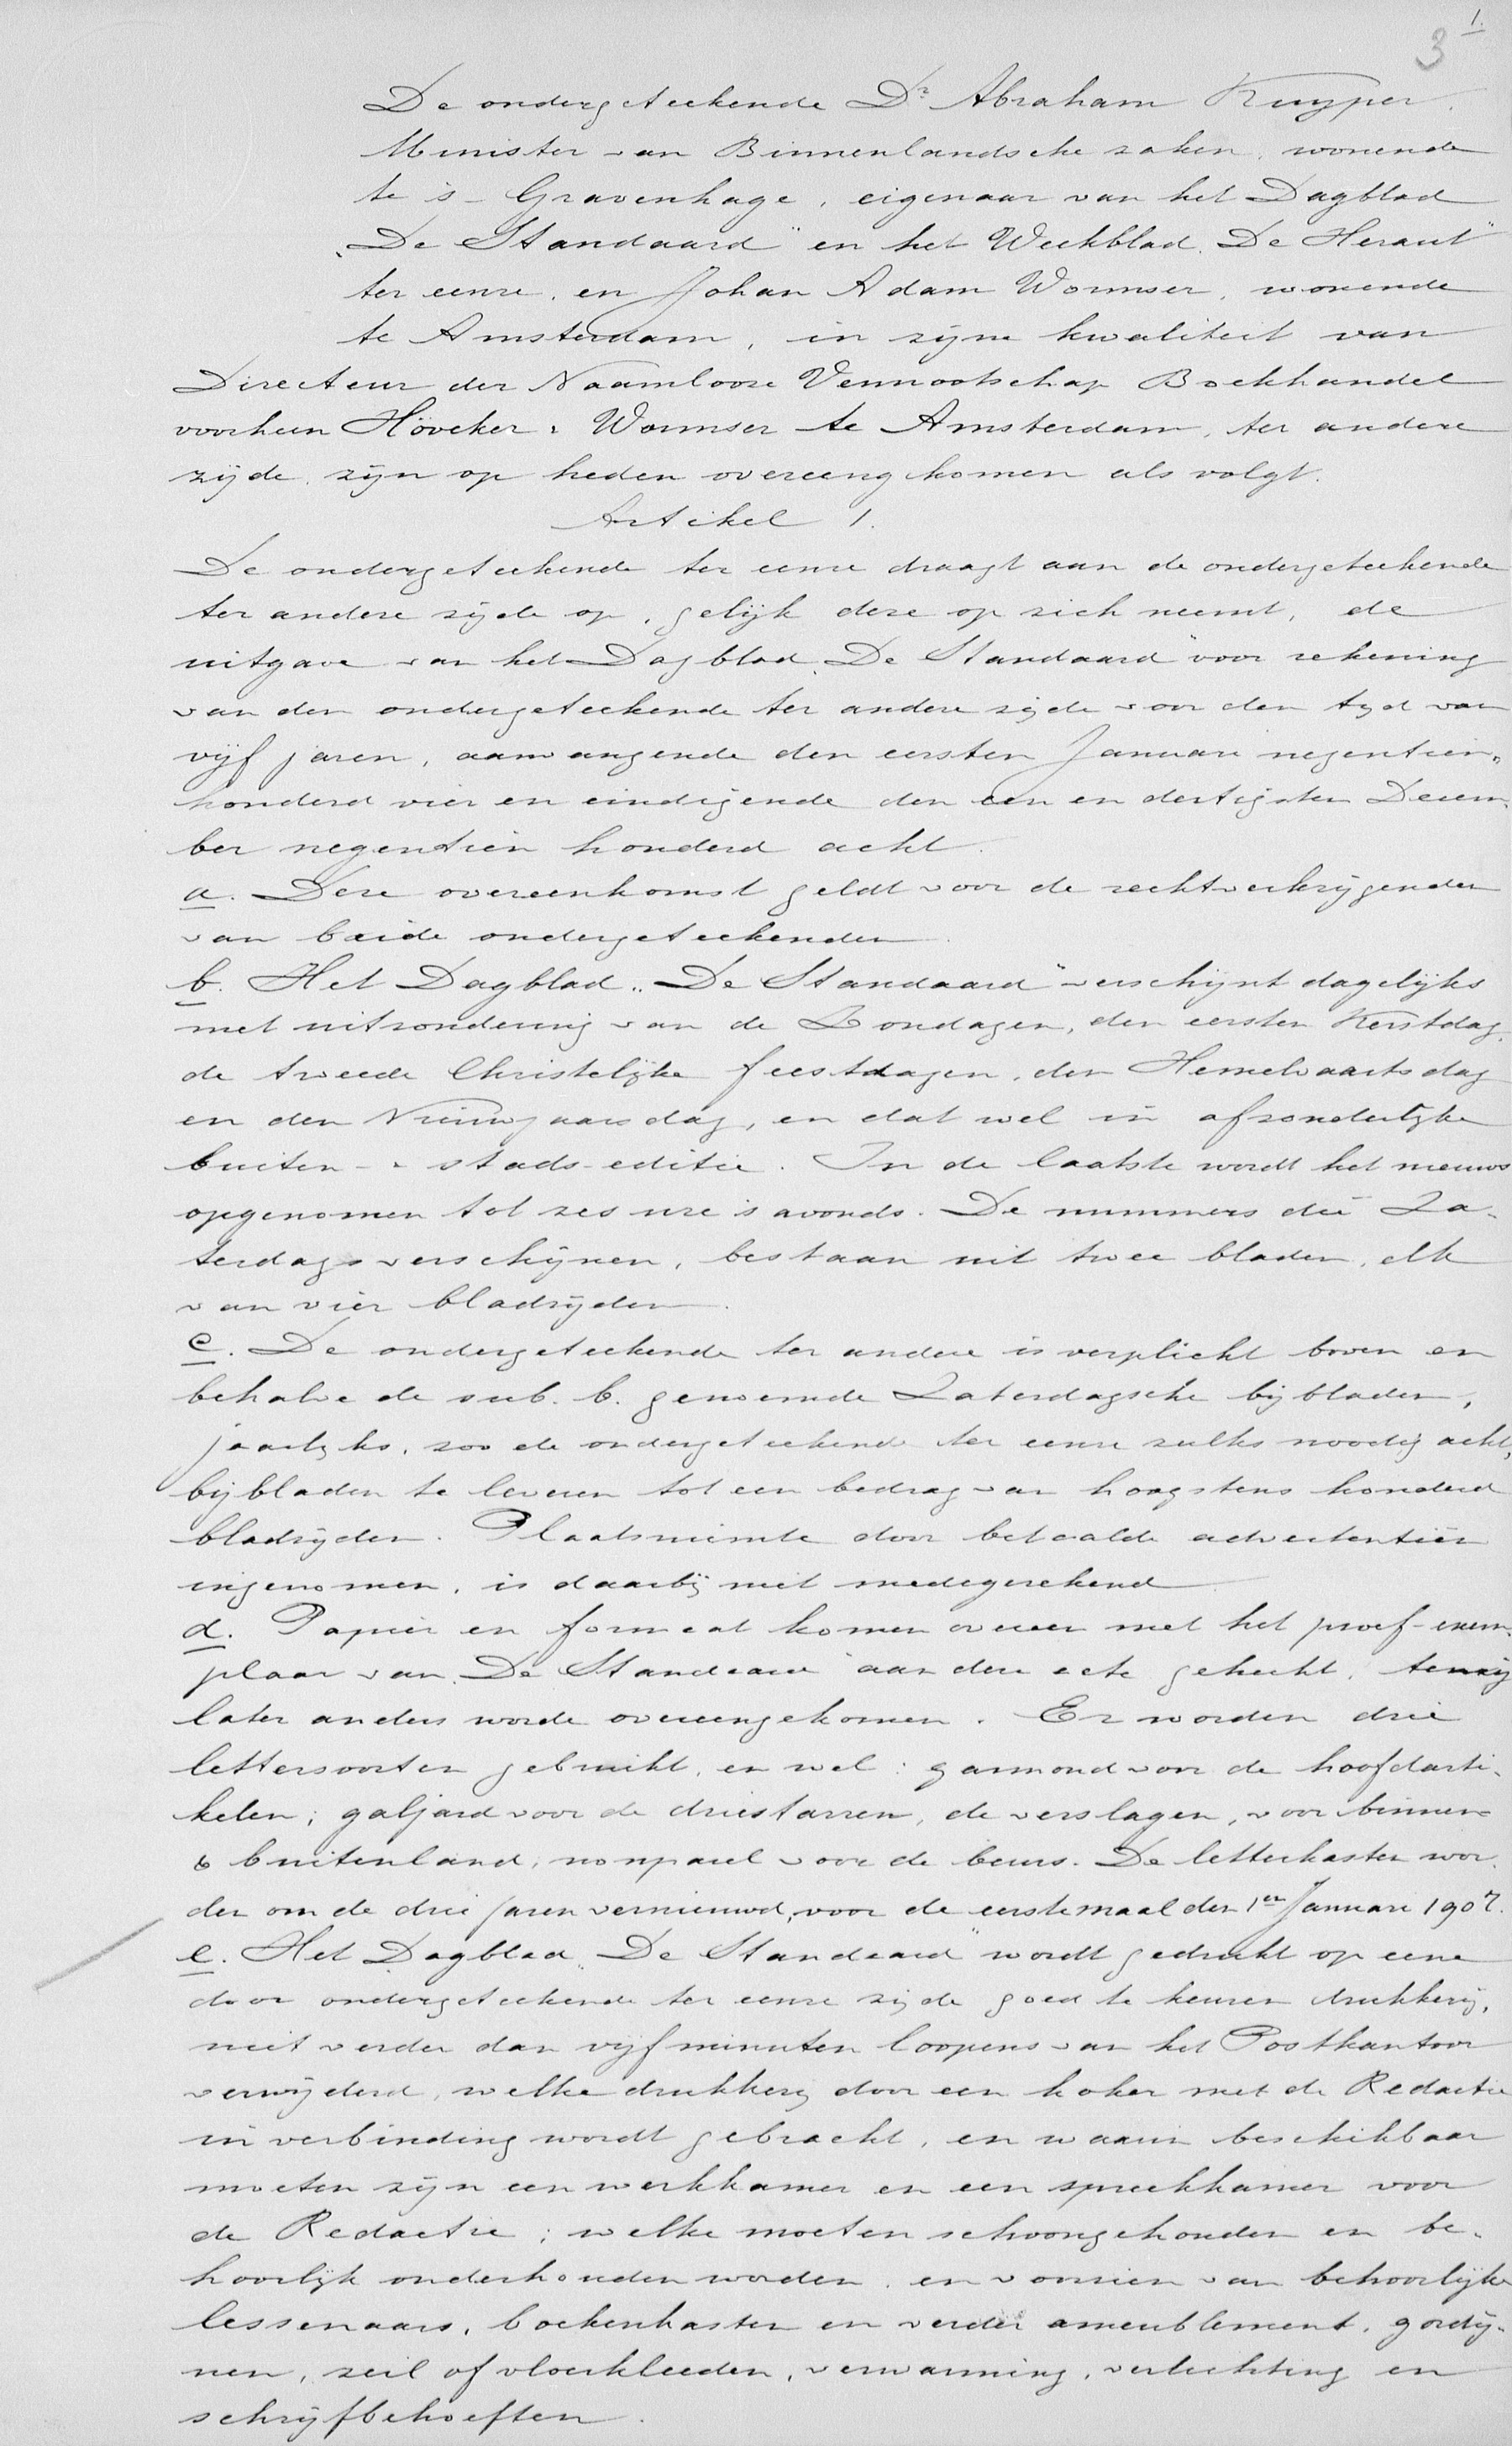 1.
3
De ondergeteekende Dr Abraham Kuyper,
Minister van Binnenlandsche zaken, wonende
te 's-Gravenhage, eigenaar van het Dagblad
„De Standaard" en het Weekblad „De Heraut"
ter eenre, en Johan Adam Wormser, wonende
te Amsterdam, in zijne kwaliteit van
Directeur der Naamlooze Vennootschap Boekhandel
voorheen Höveker & Wormser te Amsterdam, ter andere
zijde, zijn op heden overeengekomen als volgt.
Artikel 1.
De ondergeteekende ter eenre draagt aan de ondergeteekende
ter andere zijde op, gelijk deze op zich neemt, de
uitgave van het Dagblad „De Standaard" voor rekening
van den ondergeteekende ter andere zijde voor den tijd van
vijf jaren, aanvangende den eersten Januari negentien-
honderd vier en eindigende den een en dertigsten Decem-
ber negentien honderd acht.
a. Deze overeenkomst geldt voor de rechtverkrijgenden
van beide ondergeteekenden.
b. Het Dagblad „De Standaard" verschijnt dagelijks
met uitzondering van de Zondagen, den eersten Kerstdag,
de tweede Christelijke feestdagen, den Hemelvaartsdag
en den Nieuwjaarsdag, en dat wel in afzonderlijke
buiten- & stads-editie. In de laatste wordt het nieuws
opgenomen tot zes ure 's avonds. De nummers die Za-
terdags verschijnen, bestaan uit twee bladen, elk
van vier bladzijden.
c. De ondergeteekende ter andere is verplicht boven en
behalve de sub. b. genoemde Zaterdagsche bijbladen,
jaarlijks, zoo de ondergeteekende ter eenre zulks noodig acht,
bijbladen te leveren tot een bedrag van hoogstens honderd
bladzijden. Plaatsruimte door betaalde advertentiën
ingenomen, is daarbij niet medegerekend.
d. Papier en formaat komen overeen met het proef-exem-
plaar van „De Standaard" aan deze acte gehecht, tenzij
later anders worde overeengekomen. Er worden drie
lettersoorten gebruikt, en wel: garmond voor de hoofdarti-
kelen; galjard voor de driestarren, de verslagen, voor binnen-
& buitenland; nonparel voor de beurs. De letterkasten wor-
den om de drie jaren vernieuwd, voor de eerstemaal den 1en Januari 1907.
e. Het Dagblad „De Standaard" wordt gedrukt op eene
door ondergeteekende ter eenre zijde goed te keuren drukkerij,
niet verder dan vijf minuten loopens van het Postkantoor
verwijderd, welke drukkerij door een koker met de Redactie
in verbinding wordt gebracht, en waarin beschikbaar
moeten zijn een werkkamer en een spreekkamer voor
de Redactie; welke moeten schoongehouden en be-
hoorlijk onderhouden worden, en voorzien van behoorlijke
lessenaars, boekenkasten en verder ameublement, gordij-
nen, zeil of vloerkleeden, verwarming, verlichting en
schrijfbehoeften.